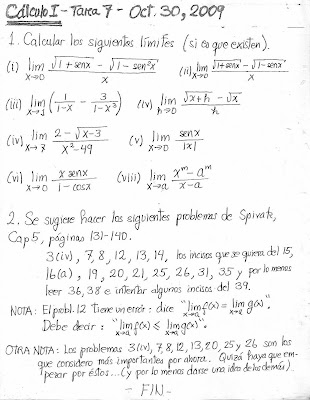 Cálculo I - Tarea 7 - Oct. 30, 2009
1. Calcular los siguientes límites (si es que existen).
(i) lim x→0 (√(1+senx) - √(1-sen²x))/x (ii) lim x→0 (√(1+senx) - √(1-senx))/x
(iii) lim x→1 (1/(1-x) - 3/(1-x³)) (iv) lim h→0 (√(x+h) - √x)/h
(iv) lim x→7 (2-√(x-3))/(x²-49) (v) lim x→0 senx/|x|
(vi) lim x→0 x senx/(1-cosx) (viii) lim x→a (x^m - a^m)/(x-a)
2. Se sugiere hacer los siguientes problemas de Spivak,
Cap 5, páginas 131-140.
3(iv), 7, 8, 12, 13, 14, los incisos que se quiera del 15,
16(a), 19, 20, 21, 25, 26, 31, 35 y por lo menos
leer 36, 38 e intentar algunos incisos del 39.
NOTA: El probl. 12 tiene un error: dice "lim x→a f(x) = lim x→a g(x)".
Debe decir: "lim x→a f(x) ≤ lim x→a g(x)".
OTRA NOTA: Los problemas 3(iv), 7, 8, 12, 13, 20, 25 y 26 son los
que considero más importantes por ahora. Quizá haya que em-
pezar por éstos... (y por lo menos darse una idea de los demás).
- FIN -